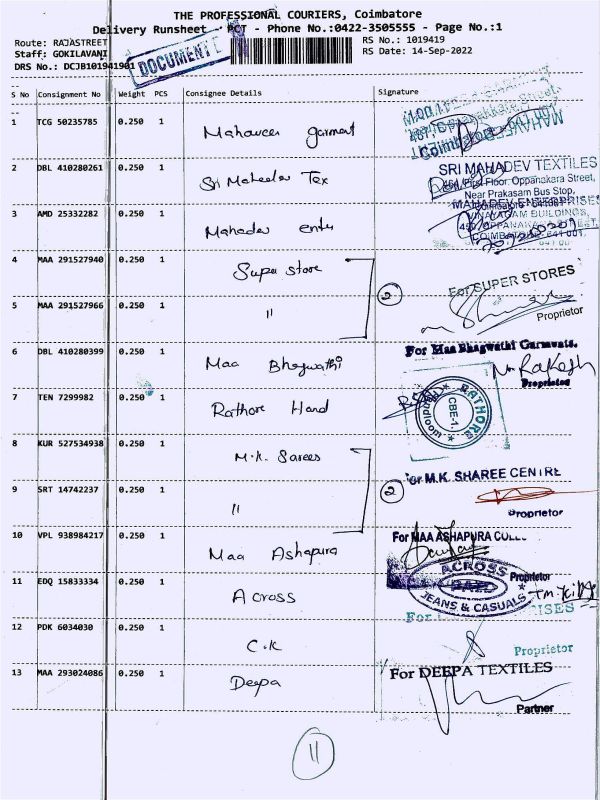 THE PROFESSIONAL COURIERS, Coimbatore
Delivery Runsheet - PCT - Phone No.:0422-3505555 - Page No.:1
Route: RAJASTREET
RS No.: 1019419
Staff: GOKILAVANI
RS Date: 14-Sep-2022
DRS No.: DCJB101941901
DOCUMENT
S No Consignment No Weight PCS Consignee Details Signature
1 TCG 50235785 0.250 1 Mahaveer garment
2 DBL 410280261 0.250 1 Sri Mahadev Tex
SRI MAHADEV TEXTILES
First Floor, Oppanakara Street,
Near Prakasam Bus Stop,
3 AMD 25332282 0.250 1 Mahadev enter
MAHADEV ENTERPRISES
VINAYAGAM BUILDINGS,
COIMBATORE - 641 001.
4 MAA 291527940 0.250 1 Super store
2
For SUPER STORES
5 MAA 291527966 0.250 1 "
Proprietor
6 DBL 410280399 0.250 1 Maa Bhagwathi
For Maa Bhagwathi Garments.
Rakesh
Proprietor
7 TEN 7299982 0.250 1 Rathore Hand
RATHORE
CBE-1.
8 KUR 527534938 0.250 1 M.K. Sarees
2
For M.K. SHAREE CENTRE
9 SRT 14742237 0.250 1 "
Proprietor
10 VPL 938984217 0.250 1 Maa Ashapura
For MAA ASHAPURA
Proprietor
11 EDQ 15833334 0.250 1 Across
ACROSS
JEANS & CASUALS
12 PDK 6034030 0.250 1 C.K
Proprietor
13 MAA 293024086 0.250 1 Deepa
For DEEPA TEXTILES
Partner
11